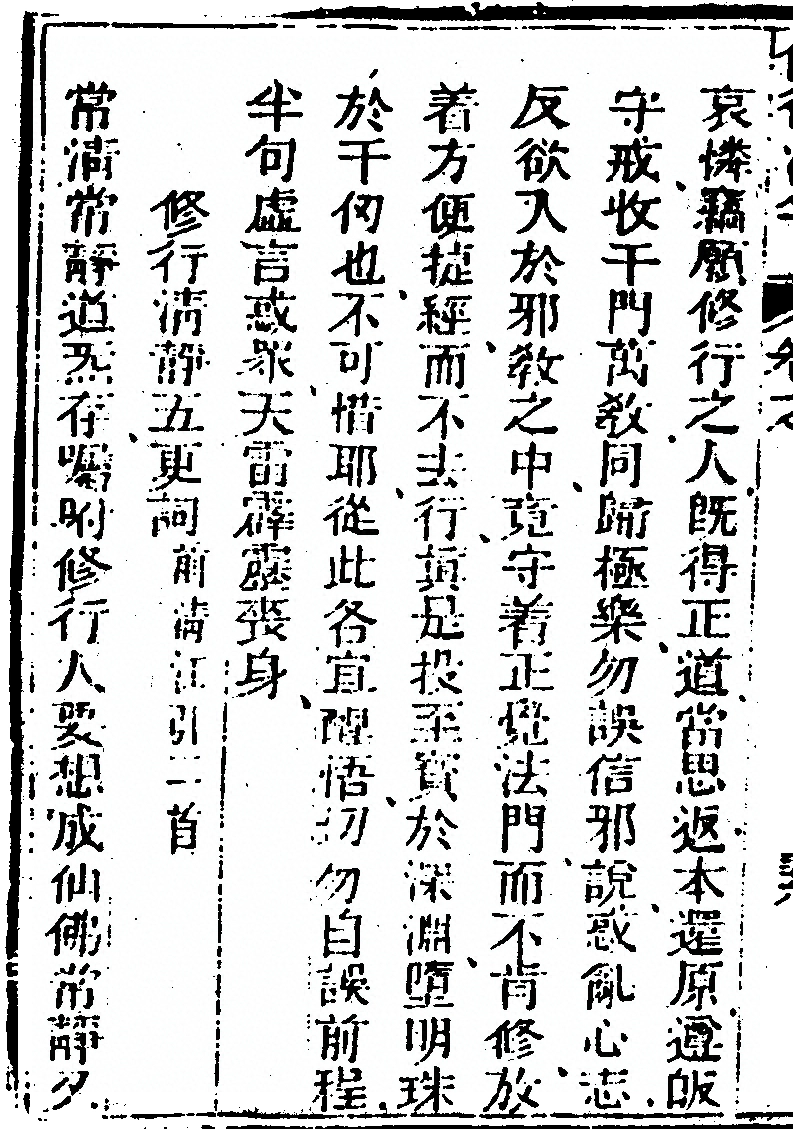 哀憐竊願修行之人既得正道當思返本還原遵皈
守戒收千門萬教同歸極樂勿誤信邪說惑亂心志
反欲入於邪教之中竟守着正覺法門而不肯修放
着方便捷經而不去行真是投至寶於深淵墮明珠
於千仞也不可惜耶從此各宜醒悟切勿自誤前程
半句虛言惑眾天雷霹靂喪身
修行清靜五更詞前清江引二首
常清常靜道炁存囑咐修行人要想成仙佛常靜夕